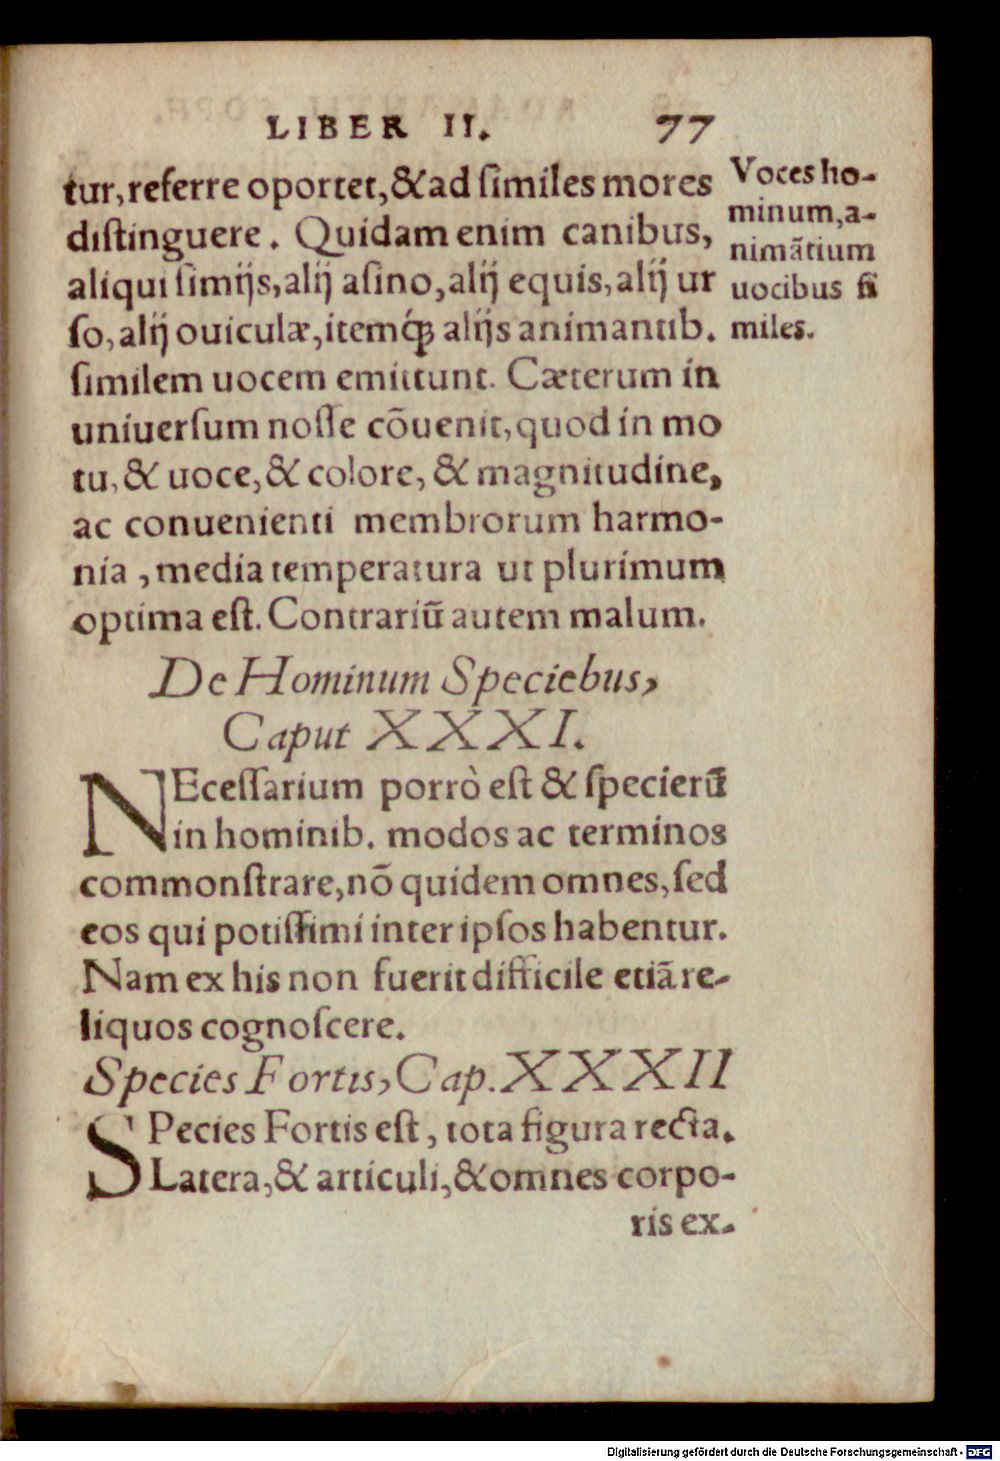 LIBER II. 77
tur, referre oportet, & ad ſimiles mores
diſtinguere. Quidam enim canibus,
aliqui ſimijs, alij aſino, alij equis, alij ur
ſo, alij ouiculæ, itemq́ꝫ alijs animantib.
ſimilem uocem emittunt. Cæterum in
uniuerſum noſſe cōuenit, quod in mo
tu, & uoce, & colore, & magnitudine,
ac conuenienti membrorum harmo-
nia, media temperatura ut plurimum
optima eſt. Contrariū autem malum.
Voces ho-
minum, a-
nimātium
uocibus ſi
miles.
De Hominum Speciebus,
Caput XXXI.
NEceſſarium porrò eſt & ſpecierū
in hominib. modos ac terminos
commonſtrare, nō quidem omnes, ſed
eos qui potiſſimi inter ipſos habentur.
Nam ex his non fuerit difficile etiā re-
liquos cognoſcere.
Species Fortis, Cap. XXXII
SPecies Fortis eſt, tota figura recta.
Latera, & articuli, & omnes corpo-
ris ex-
Digitalisierung gefördert durch die Deutsche Forschungsgemeinschaft - DFG